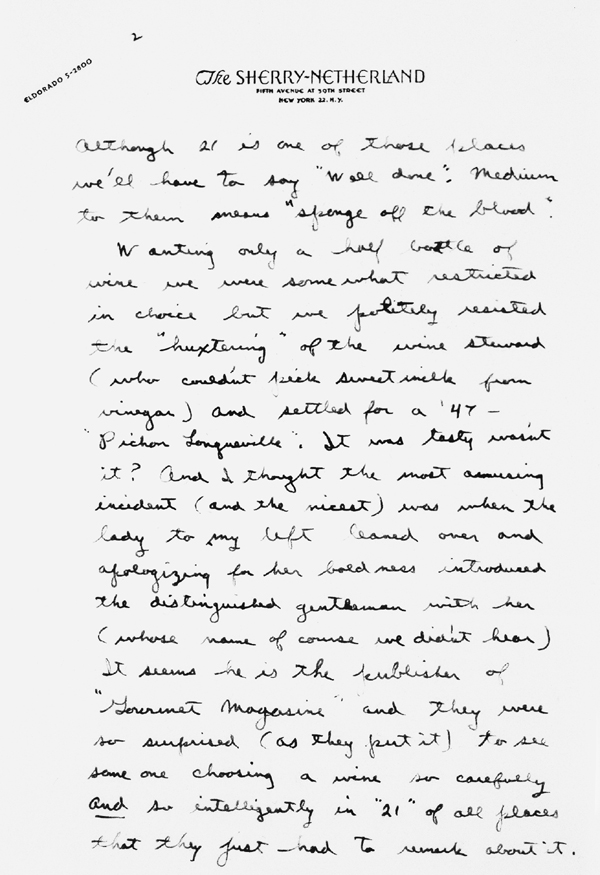 2
ELDORADO 5-2800
The SHERRY-NETHERLAND
FIFTH AVENUE AT 59TH STREET
NEW YORK 22, N.Y.
Although 21 is one of those places
we'll have to say "Well done". Medium
to them means "sponge off the blood".
Wanting only a half bottle of
wine we were somewhat restricted
in choice but we politely resisted
the "huxtering" of the wine steward
(who couldn't pick sweet milk from
vinegar) and settled for a '47 –
"Pichon Longueville". It was tasty wasn't
it? And I thought the most amusing
incident (and the nicest) was when the
lady to my left leaned over and
apologizing for her boldness introduced
the distinguished gentleman with her
(whose name of course we didn't hear)
It seems he is the publisher of
"Gourmet Magasine" and they were
so surprised (as they put it) to see
some one choosing a wine so carefully
and so intelligently in "21" of all places
that they just had to remark about it.